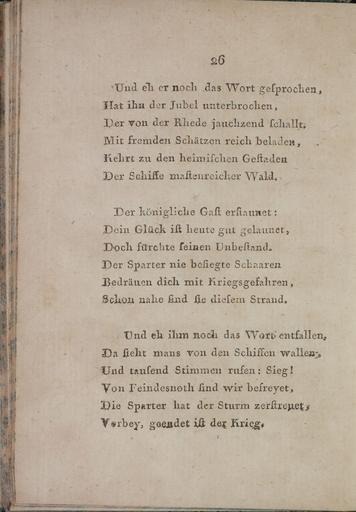 26
Und eh er noch das Wort geſprochen,
Hat ihn der Jubel unterbrochen,
Der von der Rhede jauchzend ſchallt.
Mit fremden Schätzen reich beladen,
Kehrt zu den heimiſchen Geſtaden
Der Schiffe maſtenreicher Wald.
Der königliche Gaſt erſtaunet:
Dein Glück iſt heute gut gelaunet,
Doch fürchte ſeinen Unbeſtand.
Der Sparter nie beſiegte Schaaren
Bedräuen dich mit Kriegsgefahren,
Schon nahe ſind ſie dieſem Strand.
Und eh ihm noch das Wort entfallen,
Da ſieht mans von den Schiffen wallen,
Und tauſend Stimmen rufen: Sieg!
Von Feindesnoth ſind wir befreyet,
Die Sparter hat der Sturm zerſtreuet,
Vorbey, geendet iſt der Krieg.